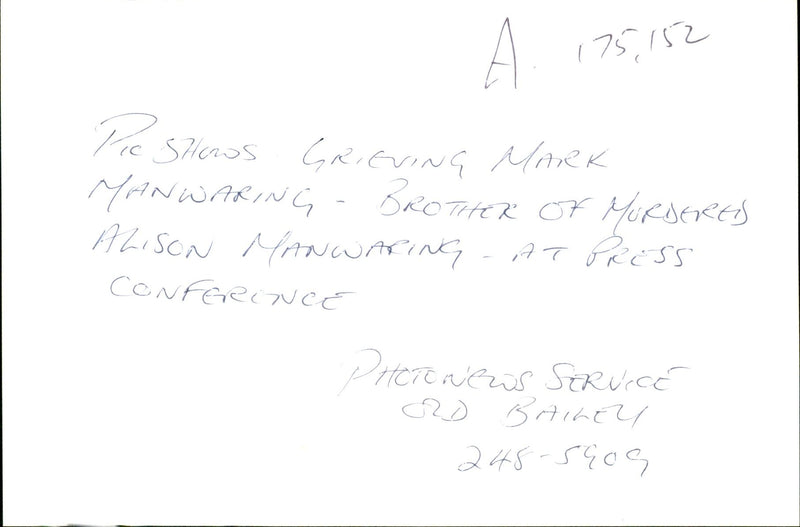 A. 175,152
PIC SHOWS. GRIEVING MARK
MANWARING - BROTHER OF MURDERED
ALISON MANWARING - AT PRESS
CONFERENCE
PHOTONEWS SERVICE
OLD BAILEY
248-5909